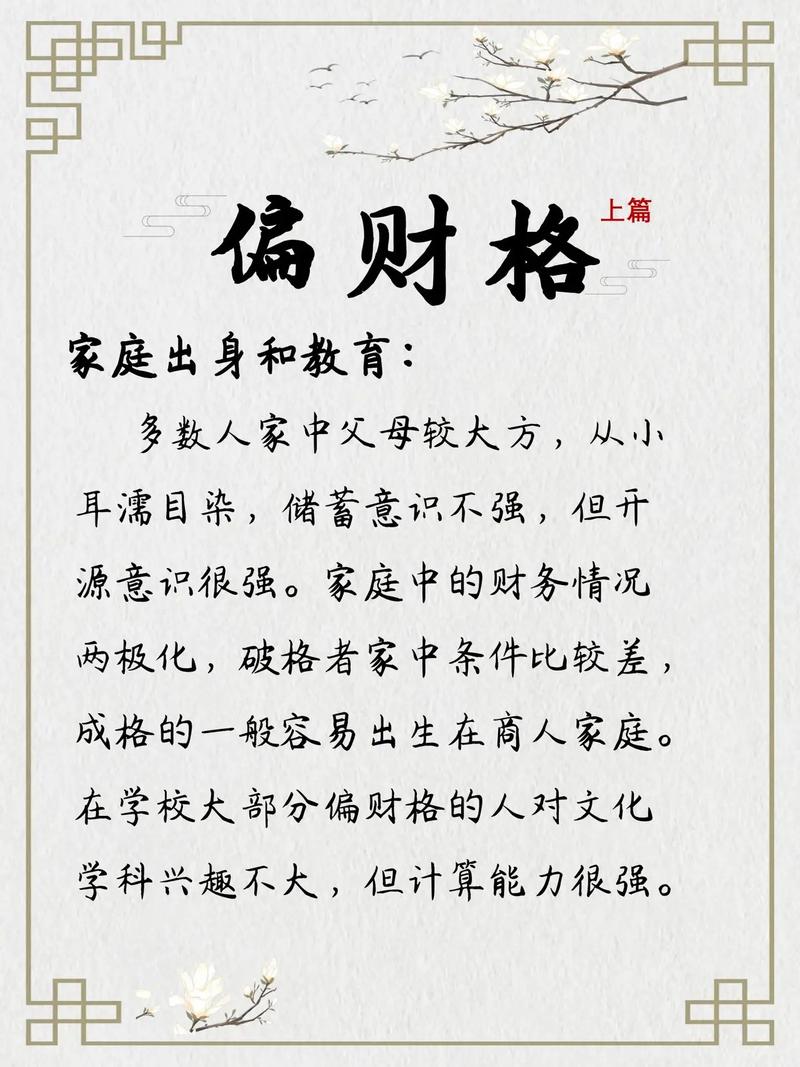 偏财格
上篇
家庭出身和教育：
多数人家中父母较大方，从小
耳濡目染，储蓄意识不强，但开
源意识很强。家庭中的财务情况
两极化，破格者家中条件比较差，
成格的一般容易出生在商人家庭。
在学校大部分偏财格的人对文化
学科兴趣不大，但计算能力很强。